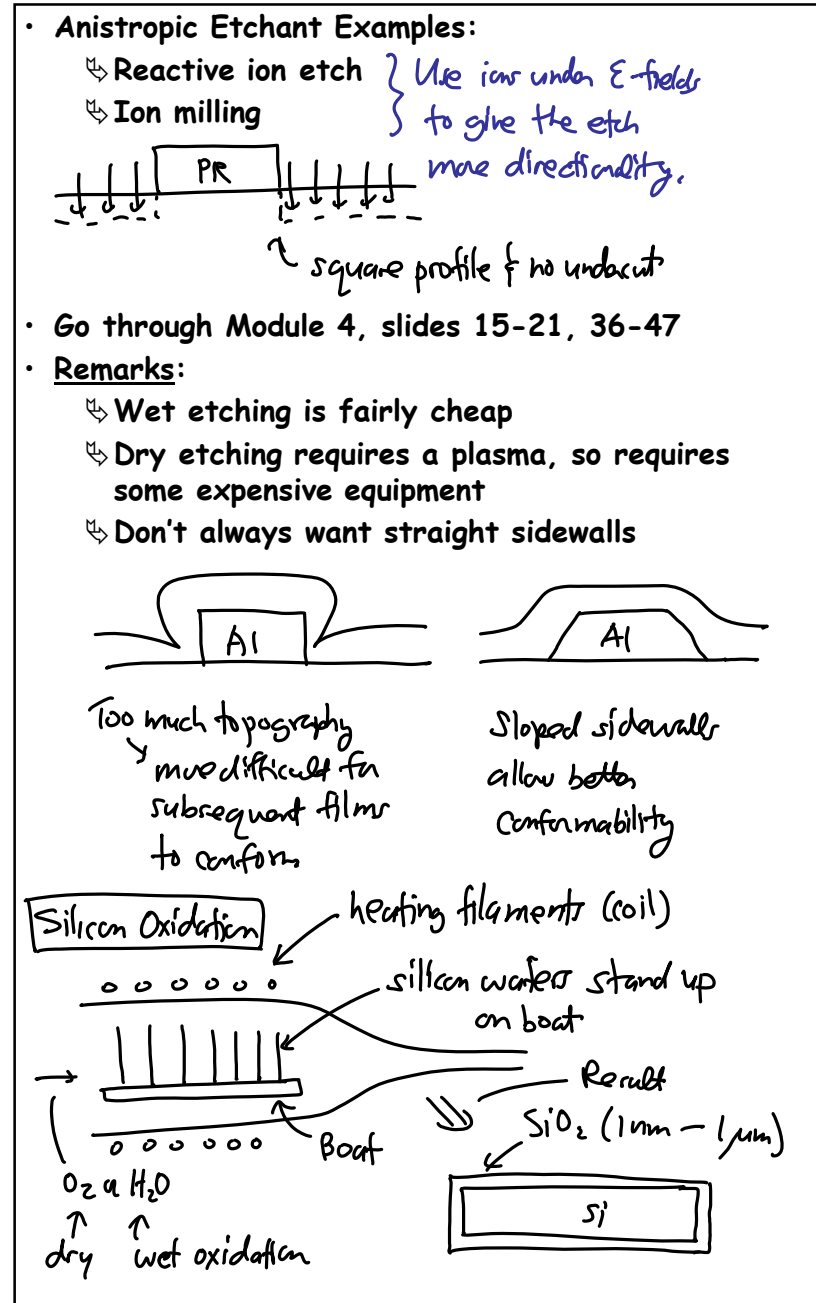 • Anistropic Etchant Examples:
↳ Reactive ion etch
↳ Ion milling
Use ions under E-fields
to give the etch
more directionality.
PR
square profile & no undercut
• Go through Module 4, slides 15-21, 36-47
• Remarks:
↳ Wet etching is fairly cheap
↳ Dry etching requires a plasma, so requires
some expensive equipment
↳ Don't always want straight sidewalls
Al
Al
Too much topography
more difficult for
subsequent films
to conform
Sloped sidewalls
allow better
conformability
Silicon Oxidation
heating filaments (coil)
silicon wafers stand up
on boat
Boat
O₂ or H₂O
dry wet oxidation
Result
SiO₂ (1nm – 1μm)
Si